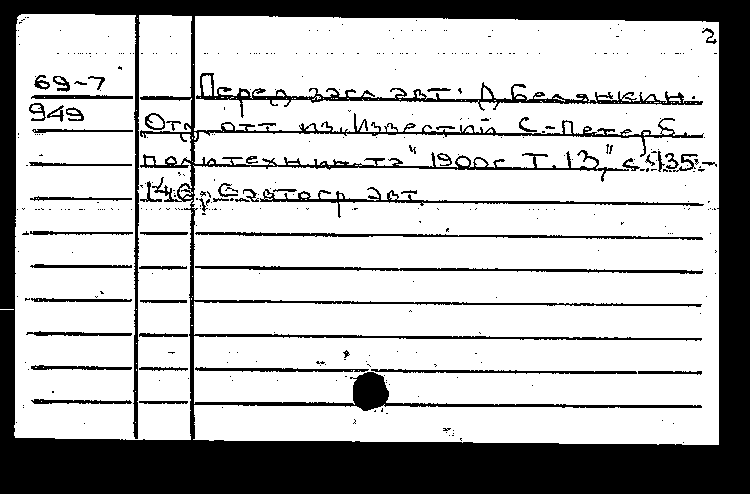 2
69-7 Перед загл авт: Д Белянкин.
949 Отд. отт из „Известий С.-Петерб.
политехн ин-та" 1900г Т. 13, с 135-
146, С автогр. авт.